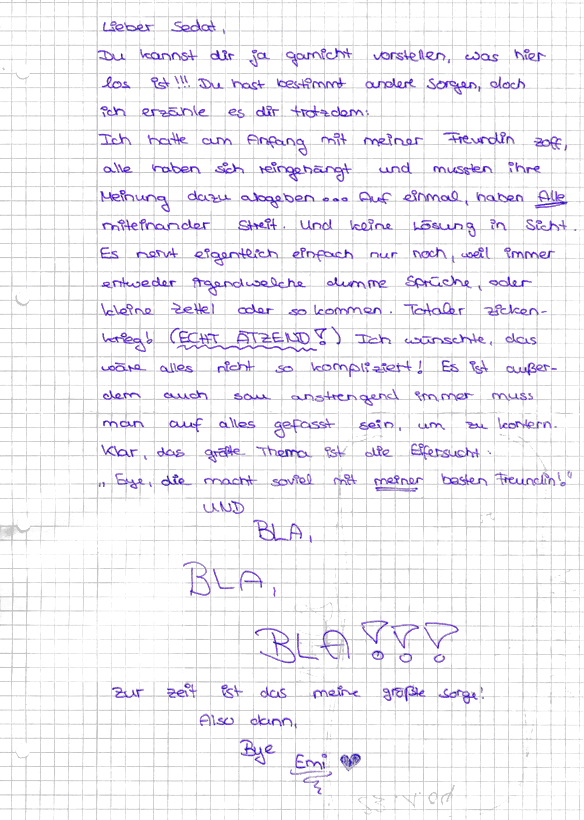 Lieber Sedat,
Du kannst dir ja garnicht vorstellen, was hier
los ist!!! Du hast bestimmt andere Sorgen, doch
ich erzähle es dir trotzdem:
Ich hatte am Anfang mit meiner Freundin zoff,
alle haben sich reingehängt und mussten ihre
Meinung dazu abgeben... Auf einmal, haben Alle
miteinander Streit. Und keine Lösung in Sicht.
Es nervt eigentlich einfach nur noch, weil immer
entweder irgendwelche dumme Sprüche, oder
kleine Zettel oder so kommen. Totaler zicken-
krieg! (ECHT ÄTZEND!) Ich wünschte, das
wäre alles nicht so kompliziert! Es ist außer-
dem auch sau anstrengend immer muss
man auf alles gefasst sein, um zu kontern.
Klar, das größte Thema ist die Eifersucht.
„Eye, die macht soviel mit meiner besten Freundin!"
UND
BLA,
BLA,
BLA!!!
Zur zeit ist das meine größte sorge!
Also dann,
Bye
Emi